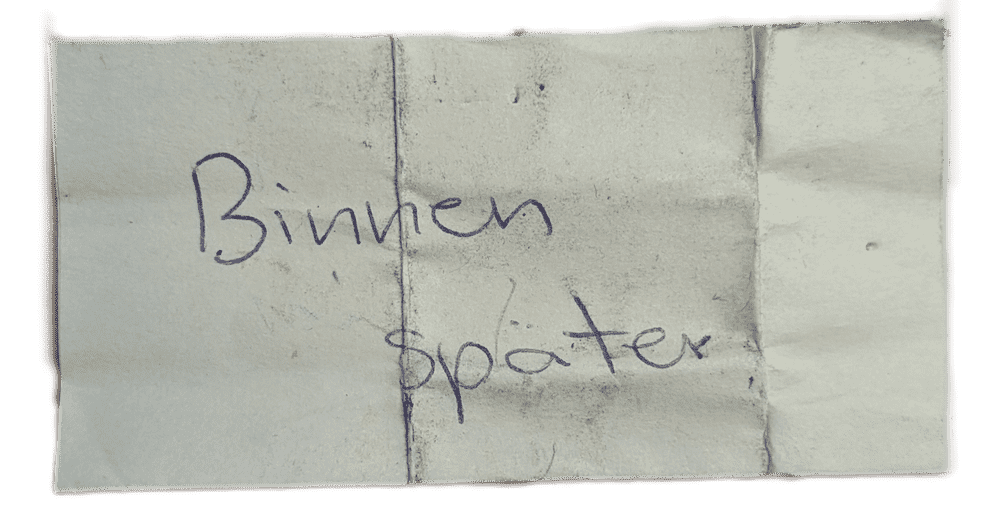 Binnen
später